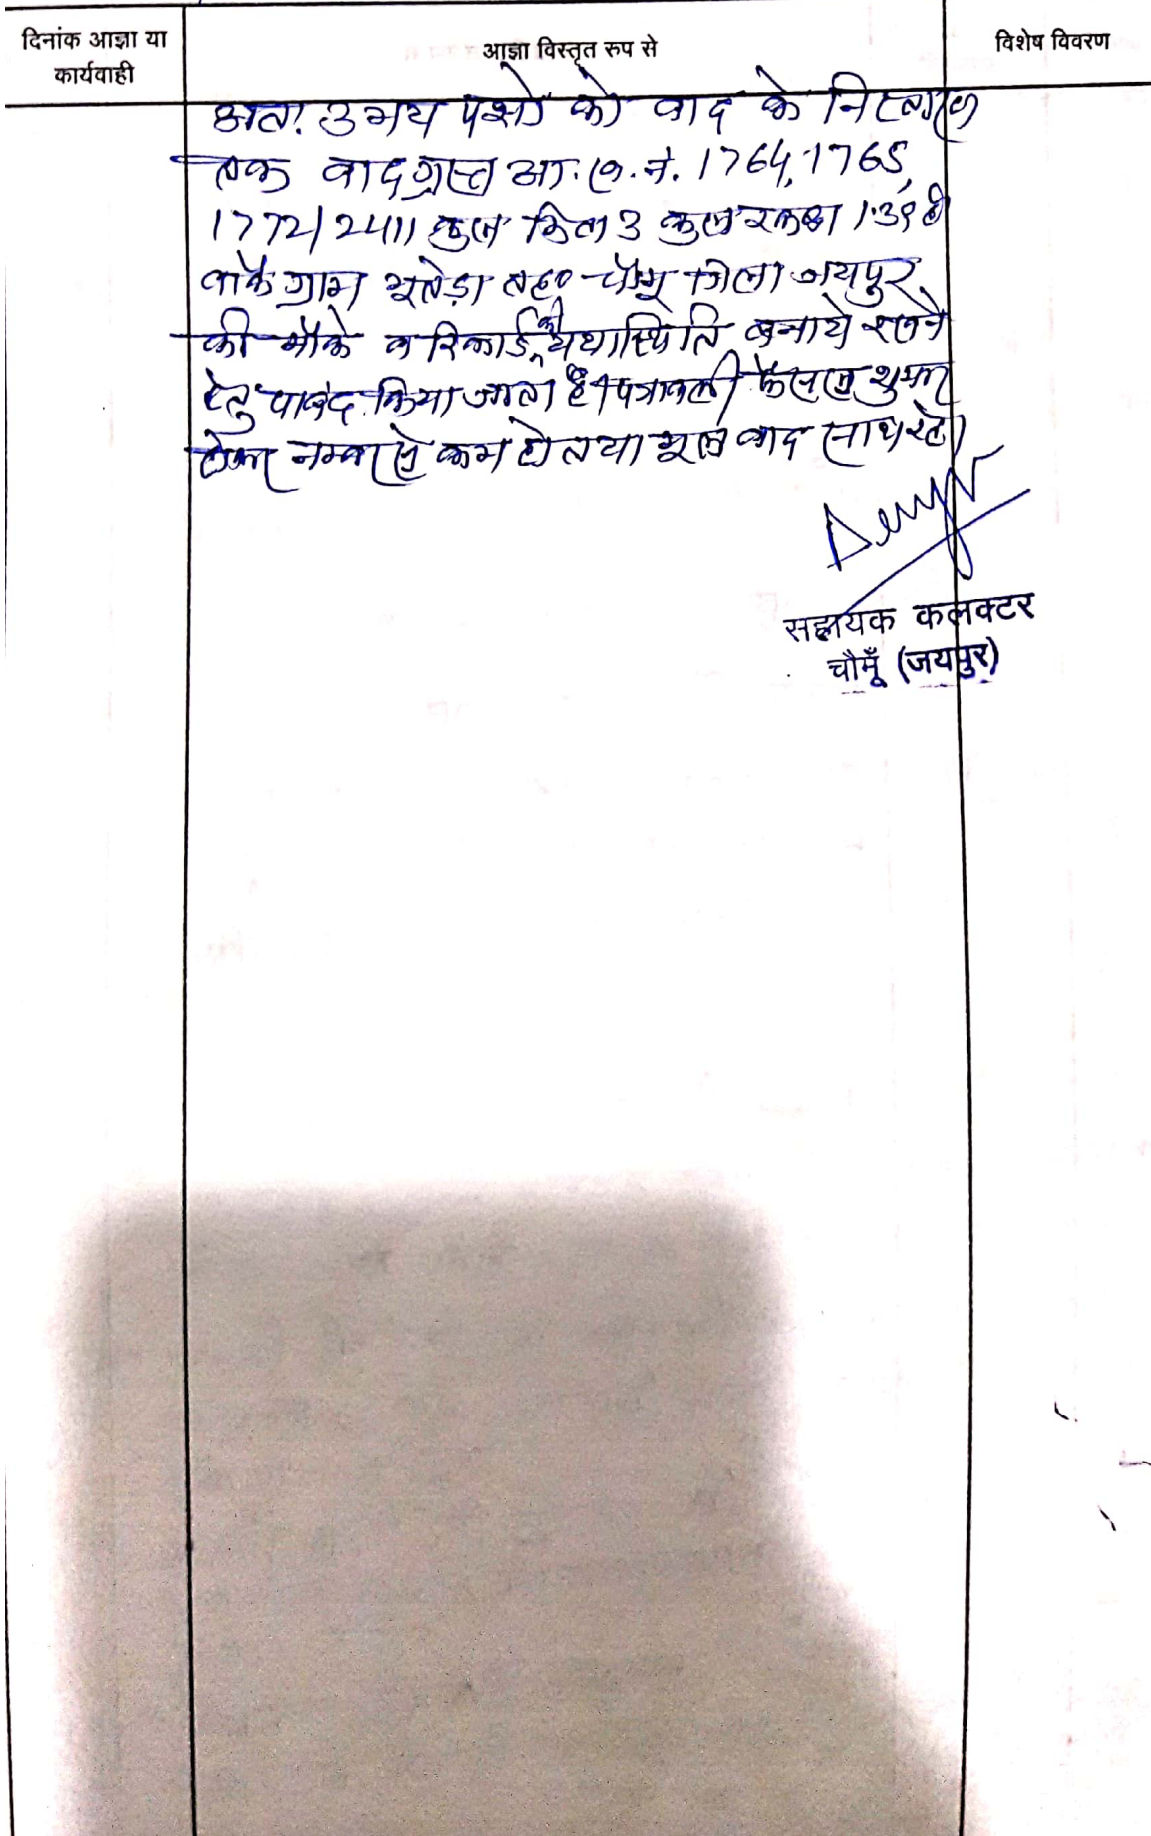 दिनांक आज्ञा या
कार्यवाही
आज्ञा विस्तृत रुप से
विशेष विवरण
अतः उभय पक्षों को वाद के निस्तारण
तक वादग्रस्त आ. ख. नं. 1764, 1765,
1772/2411 कुल किता 3 कुल रकबा 1.39 है
वाके ग्राम तह० चौमू जिला जयपुर
की मौके व रिकार्ड की यथास्थिति बनाये रखने
हेतु पाबंद किया जाता है। पत्रावली फैसल शुमार
होकर नम्बर से कम हो तथा मूल वाद साथ रहे।
सहायक कलक्टर
चौमूँ (जयपुर)